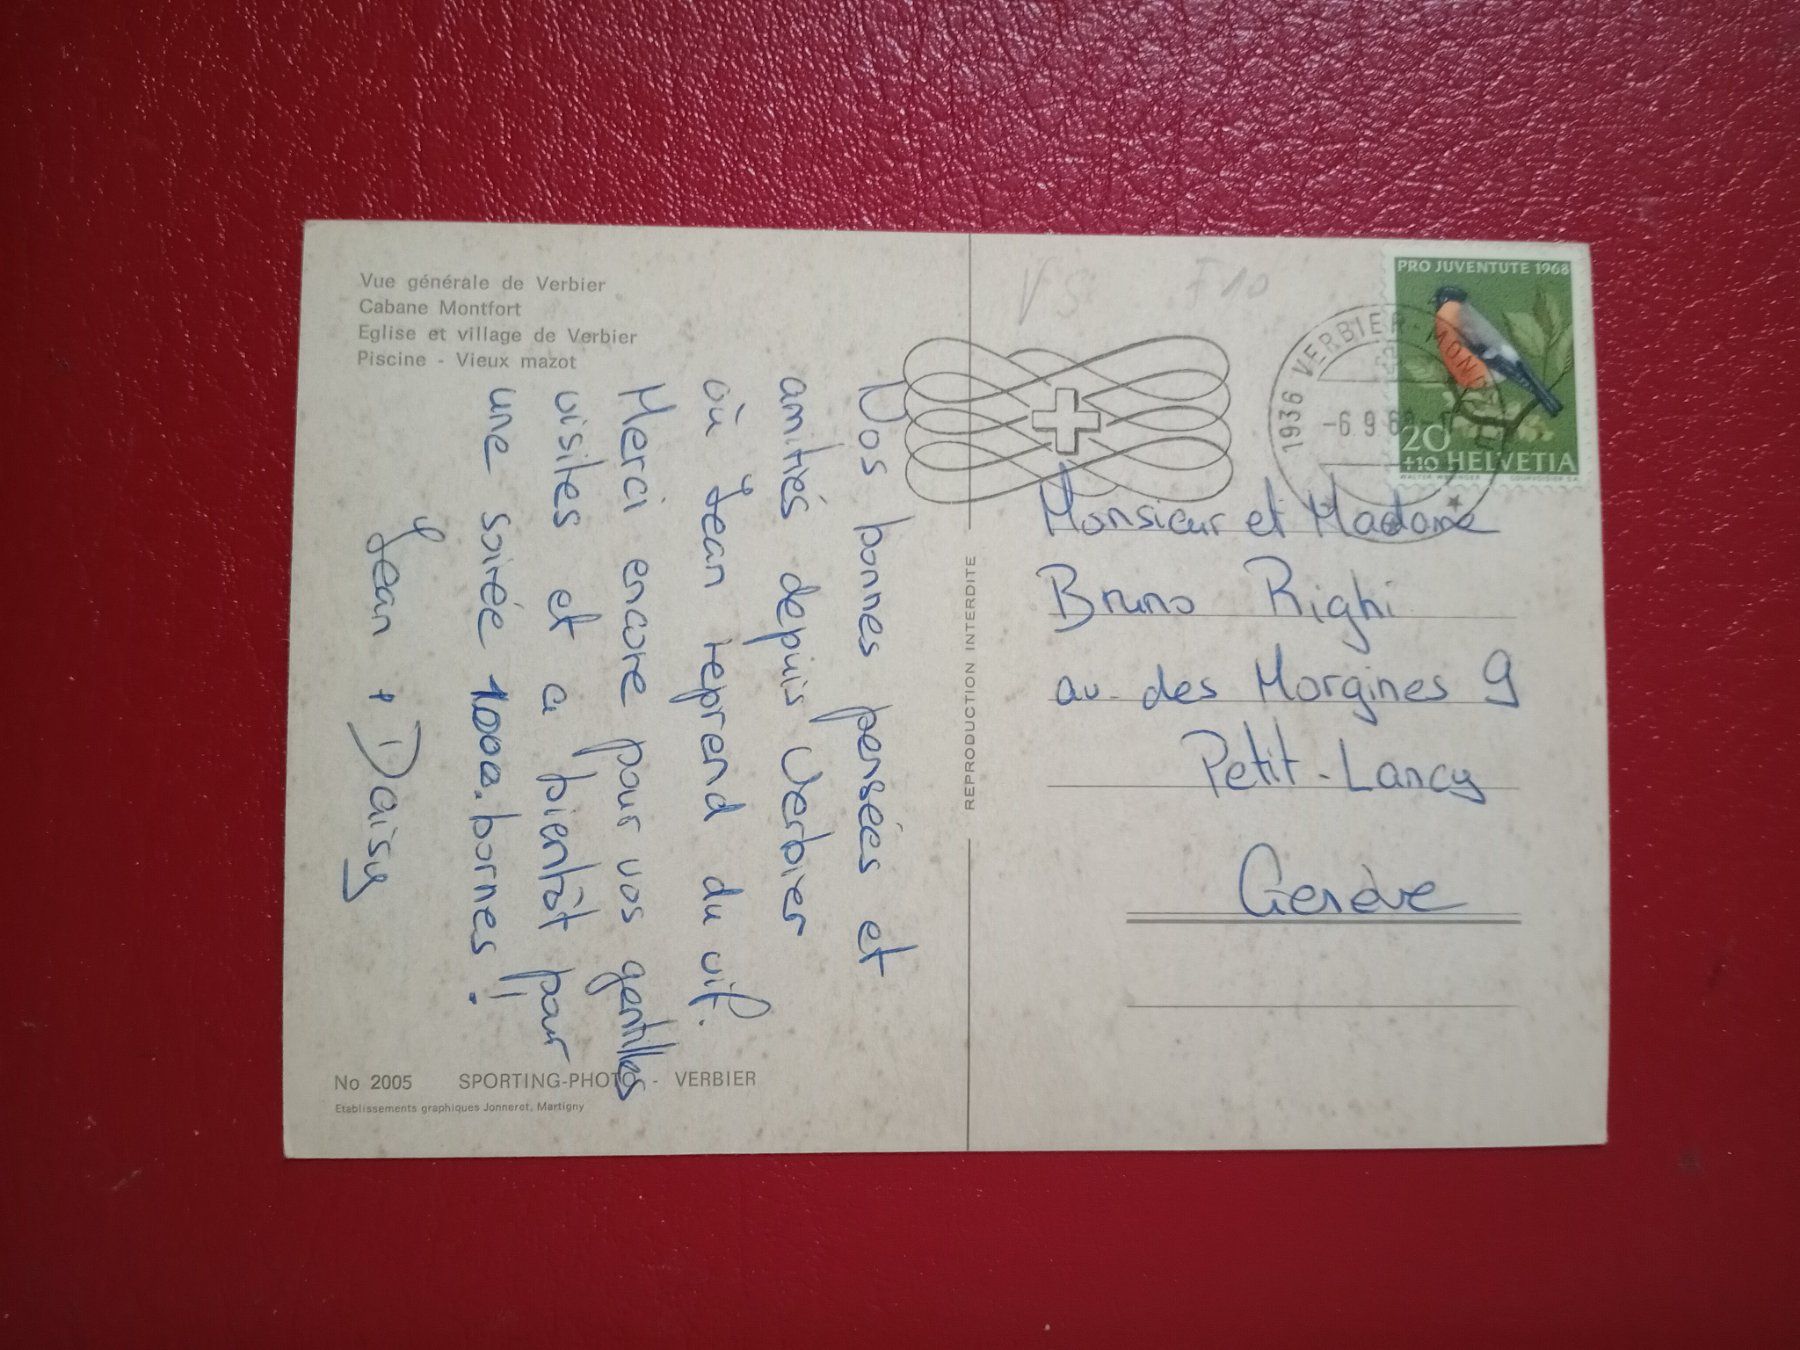 Vue générale de Verbier
Cabane Montfort
Eglise et village de Verbier
Piscine - Vieux mazot
Nos bonnes pensées et
amitiés depuis Verbier
où Jean reprend du vif.
Merci encore pour vos gentilles
visites et a bientôt pour
une soirée 1000.bornes !!
Jean + Daisy
No 2005 SPORTING-PHOTO - VERBIER
Etablissements graphiques Jonneret, Martigny
REPRODUCTION INTERDITE
VS F10
1936 VERBIER
-6.9.6
PRO JUVENTUTE 1968
20
+10 HELVETIA
COURVOISIER SA
Monsieur et Madame
Bruno Righi
av. des Morgines 9
Petit-Lancy
Genève